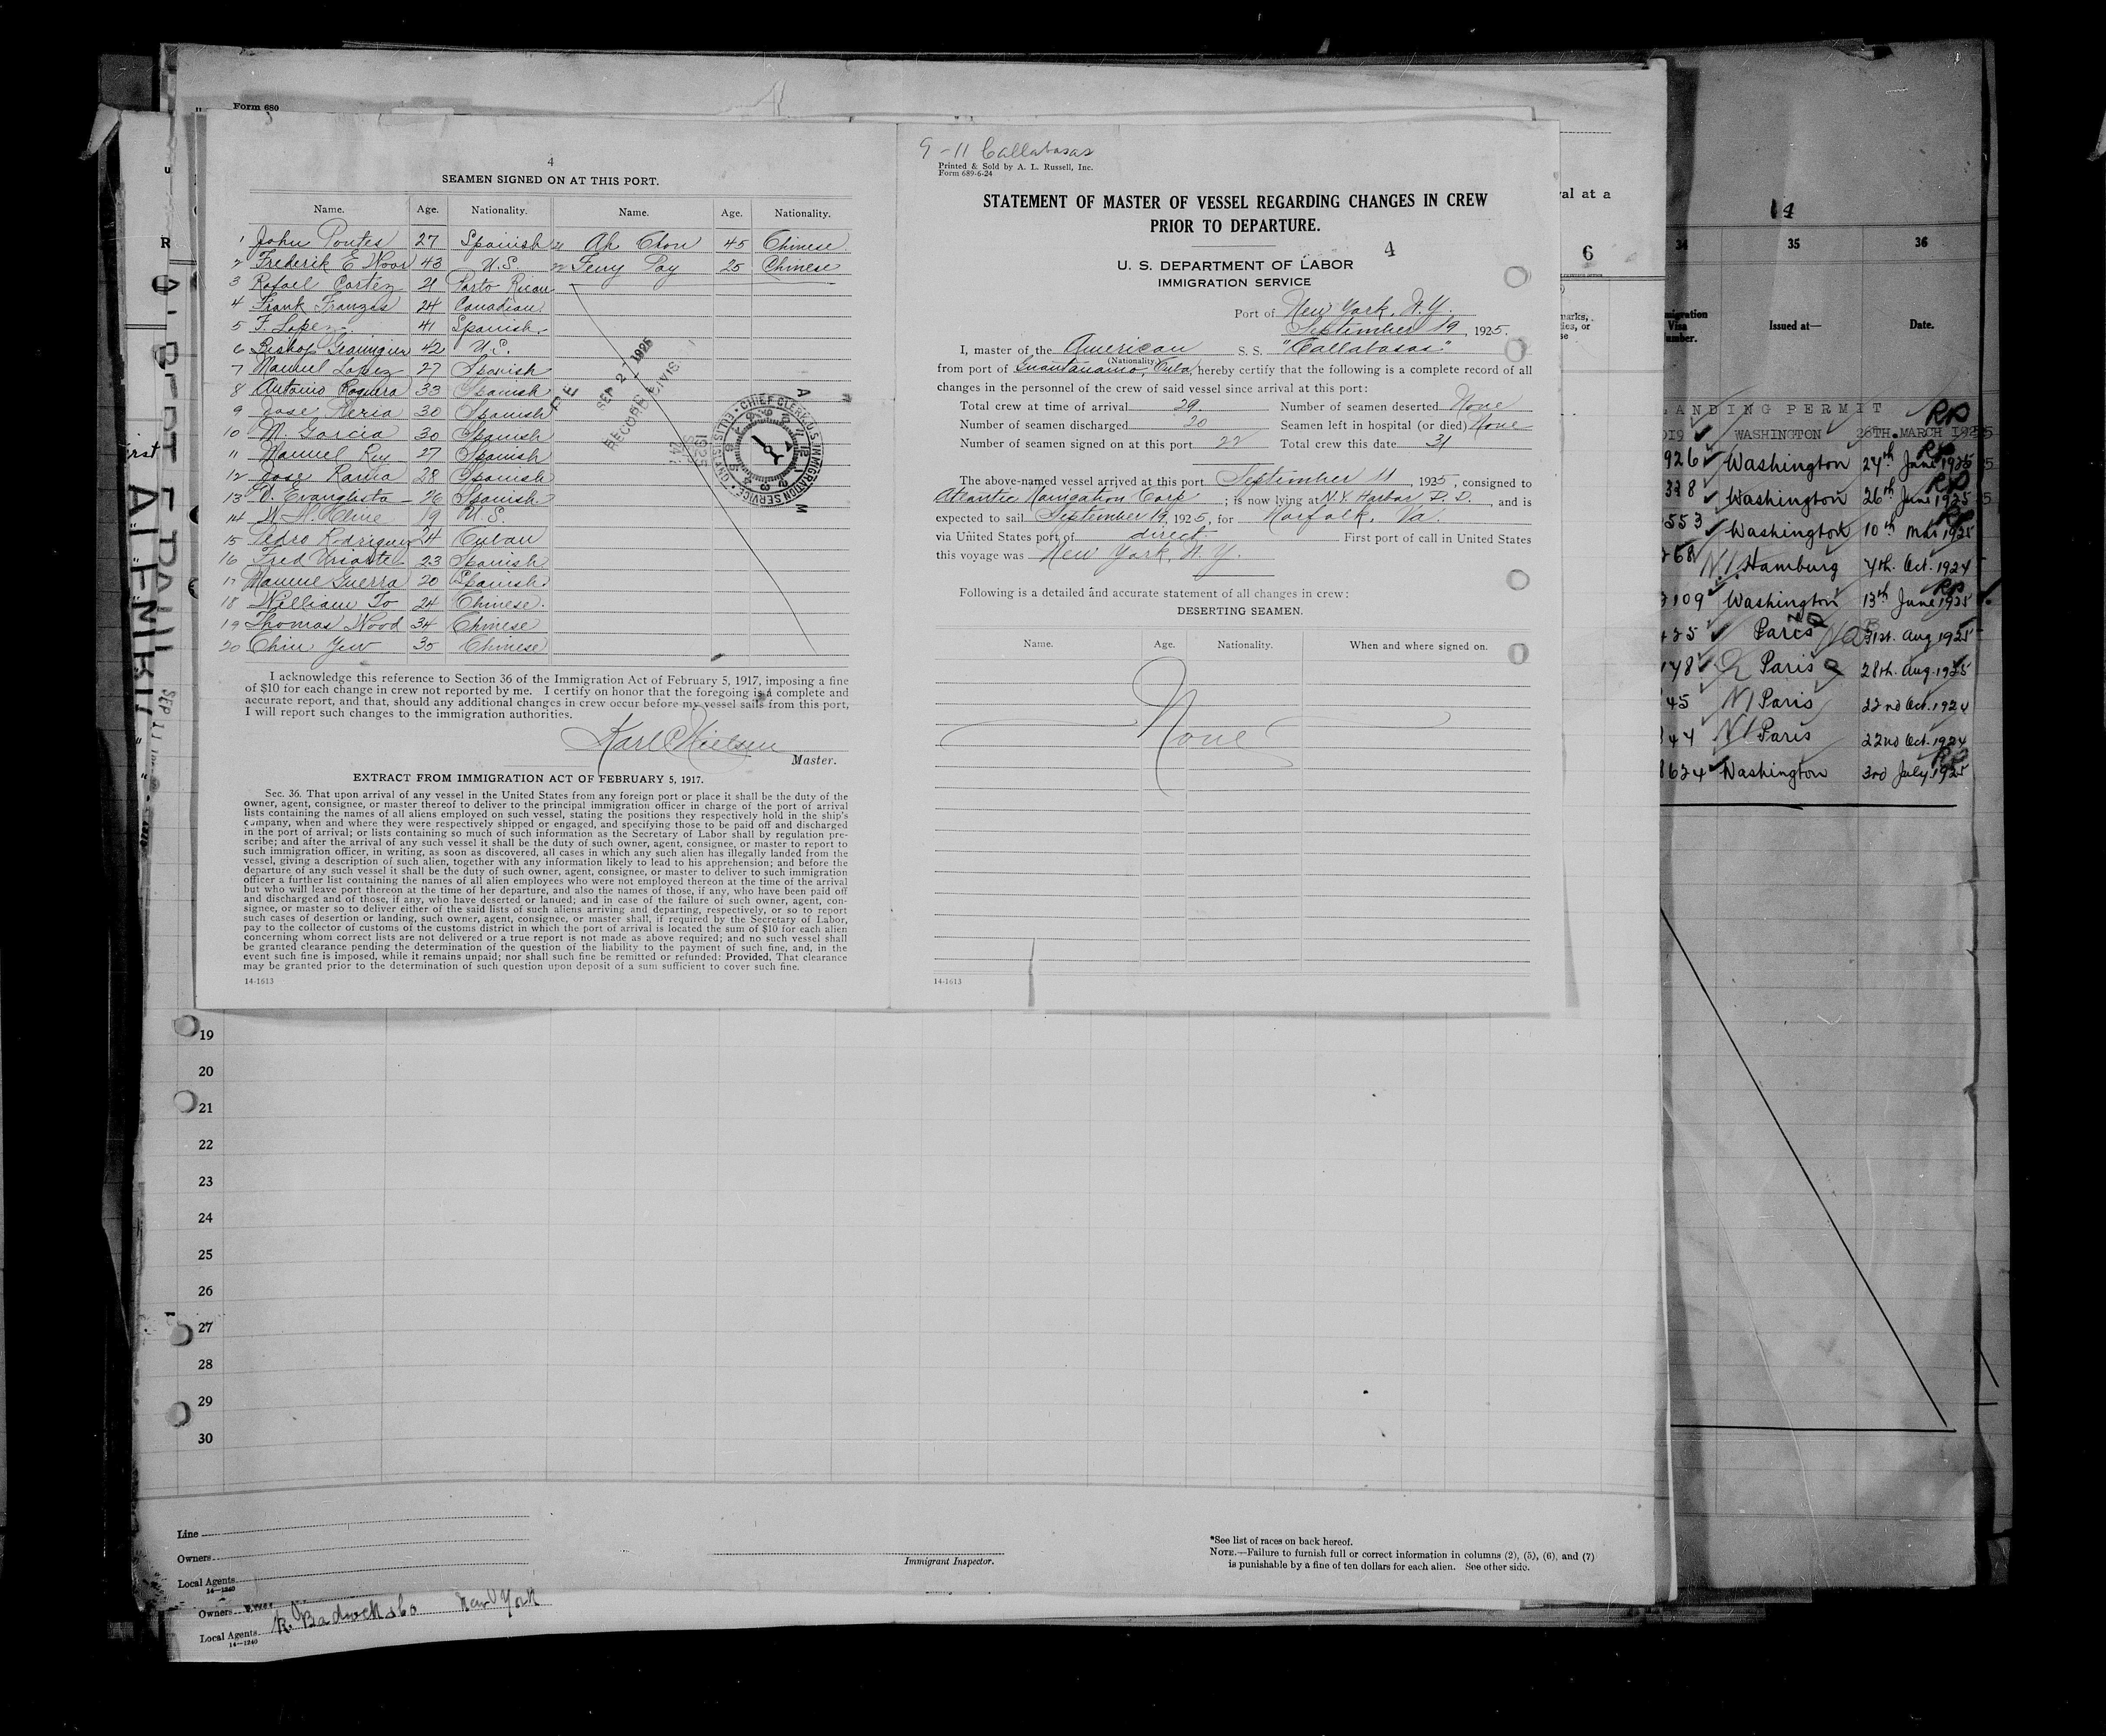 Form 680
4
SEAMEN SIGNED ON AT THIS PORT.
Name. Age. Nationality. Name. Age. Nationality.
1 John Pontes 27 Spanish 21 Ah Chow 45 Chinese.
2 Frederik E Noor 43 U.S. 22 Ferry Pay 25 Chinese
3 Rafael Cortez 21 Porto Rican
4 Frank Franzis 24 Canadian
5 F. Lopez 41 Spanish.
6 Bishop Grainguer 42 U.S.
7 Manuel Lopez 27 Spanish
8 Antonio Roguera 33 Spanish
9 Jose Neria 30 Spanish
10 M. Garcia 30 Spanish
11 Manuel Rey 27 Spanish
12 Jose Rama 28 Spanish
13 D. Evanglista 26 Spanish.
14 W. H. Cline 19 U.S.
15 Pedro Rodriguez 24 Cuban
16 Fred Uriarte 23 Spanish
17 Manuel Guerra 20 Spanish.
18 William To 24 Chinese.
19 Thomas Wood 34 Chinese
20 Chin Yew 35 Chinese
SEP 21 1925
RECORD DIVISION
CHIEF CLERK U.S. IMMIGRATION SERVICE
I acknowledge this reference to Section 36 of the Immigration Act of February 5, 1917, imposing a fine
of $10 for each change in crew not reported by me. I certify on honor that the foregoing is a complete and
accurate report, and that, should any additional changes in crew occur before my vessel sails from this port,
I will report such changes to the immigration authorities.
Karl C Nielsen
Master.
EXTRACT FROM IMMIGRATION ACT OF FEBRUARY 5, 1917.
Sec. 36. That upon arrival of any vessel in the United States from any foreign port or place it shall be the duty of the
owner, agent, consignee, or master thereof to deliver to the principal immigration officer in charge of the port of arrival
lists containing the names of all aliens employed on such vessel, stating the positions they respectively hold in the ship's
company, when and where they were respectively shipped or engaged, and specifying those to be paid off and discharged
in the port of arrival; or lists containing so much of such information as the Secretary of Labor shall by regulation pre-
scribe; and after the arrival of any such vessel it shall be the duty of such owner, agent, consignee, or master to report to
such immigration officer, in writing, as soon as discovered, all cases in which any such alien has illegally landed from the
vessel, giving a description of such alien, together with any information likely to lead to his apprehension; and before the
departure of any such vessel it shall be the duty of such owner, agent, consignee, or master to deliver to such immigration
officer a further list containing the names of all alien employees who were not employed thereon at the time of the arrival
but who will leave port thereon at the time of her departure, and also the names of those, if any, who have been paid off
and discharged and of those, if any, who have deserted or landed; and in case of the failure of such owner, agent, con-
signee, or master so to deliver either of the said lists of such aliens arriving and departing, respectively, or so to report
such cases of desertion or landing, such owner, agent, consignee, or master shall, if required by the Secretary of Labor,
pay to the collector of customs of the customs district in which the port of arrival is located the sum of $10 for each alien
concerning whom correct lists are not delivered or a true report is not made as above required; and no such vessel shall
be granted clearance pending the determination of the question of the liability to the payment of such fine, and, in the
event such fine is imposed, while it remains unpaid; nor shall such fine be remitted or refunded: Provided, That clearance
may be granted prior to the determination of such question upon deposit of a sum sufficient to cover such fine.
14-1613
9-11 Callabasas
Printed & Sold by A. L. Russell, Inc.
Form 689-6-24
STATEMENT OF MASTER OF VESSEL REGARDING CHANGES IN CREW
PRIOR TO DEPARTURE.
4
U. S. DEPARTMENT OF LABOR
IMMIGRATION SERVICE
Port of New York, N.Y.
September 19, 1925.
I, master of the American S. S. "Callabasas"
(Nationality)
from port of Guantanamo, Cuba, hereby certify that the following is a complete record of all
changes in the personnel of the crew of said vessel since arrival at this port:
Total crew at time of arrival 29. Number of seamen deserted None
Number of seamen discharged 20 Seamen left in hospital (or died) None
Number of seamen signed on at this port 22 Total crew this date 31
The above-named vessel arrived at this port September 11, 1925, consigned to
Atlantic Navigation Corp; is now lying at N.Y. Harbor D. D., and is
expected to sail September 19, 1925, for Norfolk, Va.
via United States port of direct First port of call in United States
this voyage was New York, N.Y.
Following is a detailed and accurate statement of all changes in crew:
DESERTING SEAMEN.
Name. Age. Nationality. When and where signed on.
None
14-1613
val at a
6
14
34 35 36
migration Visa number. Issued at— Date.
LANDING PERMIT RP
019 WASHINGTON 26TH. MARCH 1925
926 Washington 24th June 1925
338 Washington 26th June 1925
553 Washington 10th Mar 1925
268 N.I. Hamburg 4th. Oct. 1924
109 Washington 13th June 1925
425 Paris 31st. Aug 1925
148 Paris 28th. Aug. 1925
45 NI Paris 22nd Oct. 1924
44 NI Paris 22nd Oct. 1924
8624 Washington 3rd July 1925
19
20
21
22
23
24
25
26
27
28
29
30
Line
Owners
Local Agents
14—1240
Immigrant Inspector.
*See list of races on back hereof.
NOTE.—Failure to furnish full or correct information in columns (2), (5), (6), and (7)
is punishable by a fine of ten dollars for each alien. See other side.
Owners
Local Agents New York
14—1240